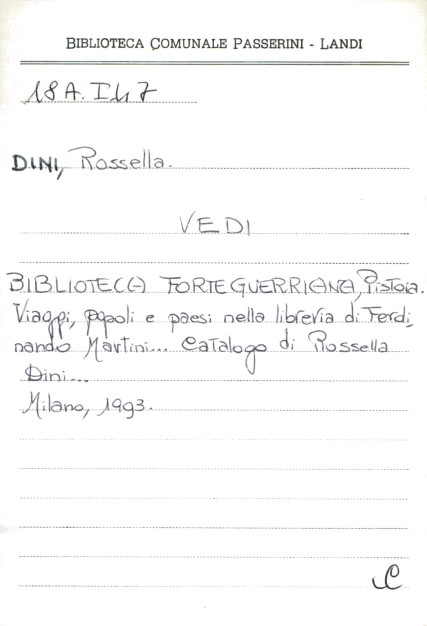 BIBLIOTECA COMUNALE PASSERINI - LANDI
18 A. I 47
DINI, Rossella.
VEDI
BIBLIOTECA FORTEGUERRIANA, Pistoia.
Viaggi, popoli e paesi nella libreria di Ferdi
nando Martini... Catalogo di Rossella
Dini...
Milano, 1993.